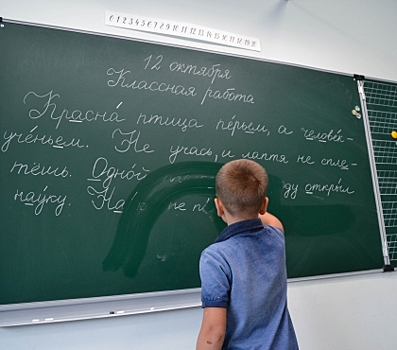 0123456789
12 октября
Классная работа
Красна́ птица пе́рьем, а челове́к-
уче́ньем. Не учась, и лаптя не спле-
тёшь. Одно́й ду откры́л
нау́ку. не